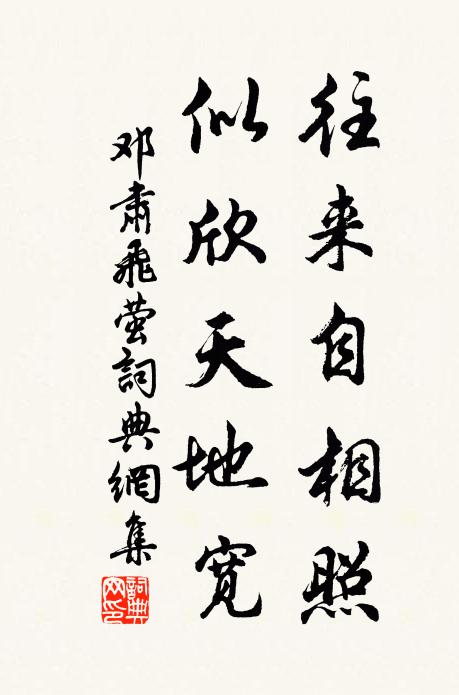 往来自相照
似欣天地宽
邓肃飛萤詞典網集
詞典网印